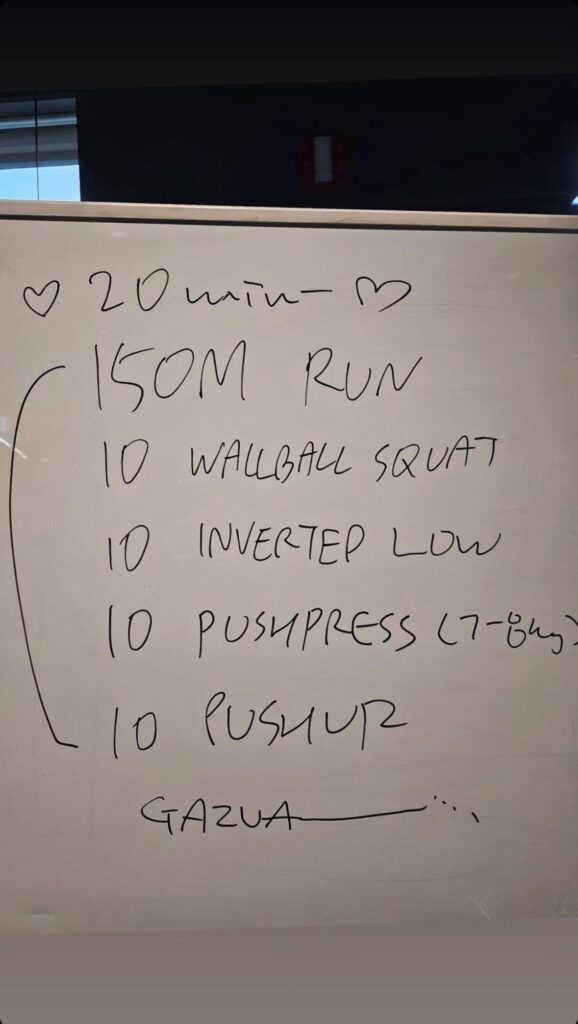 ♡ 20min- ♡
150M RUN
10 WALLBALL SQUAT
10 INVERTED LOW
10 PUSHPRESS (7-8kg)
10 PUSHUP
GAZUA